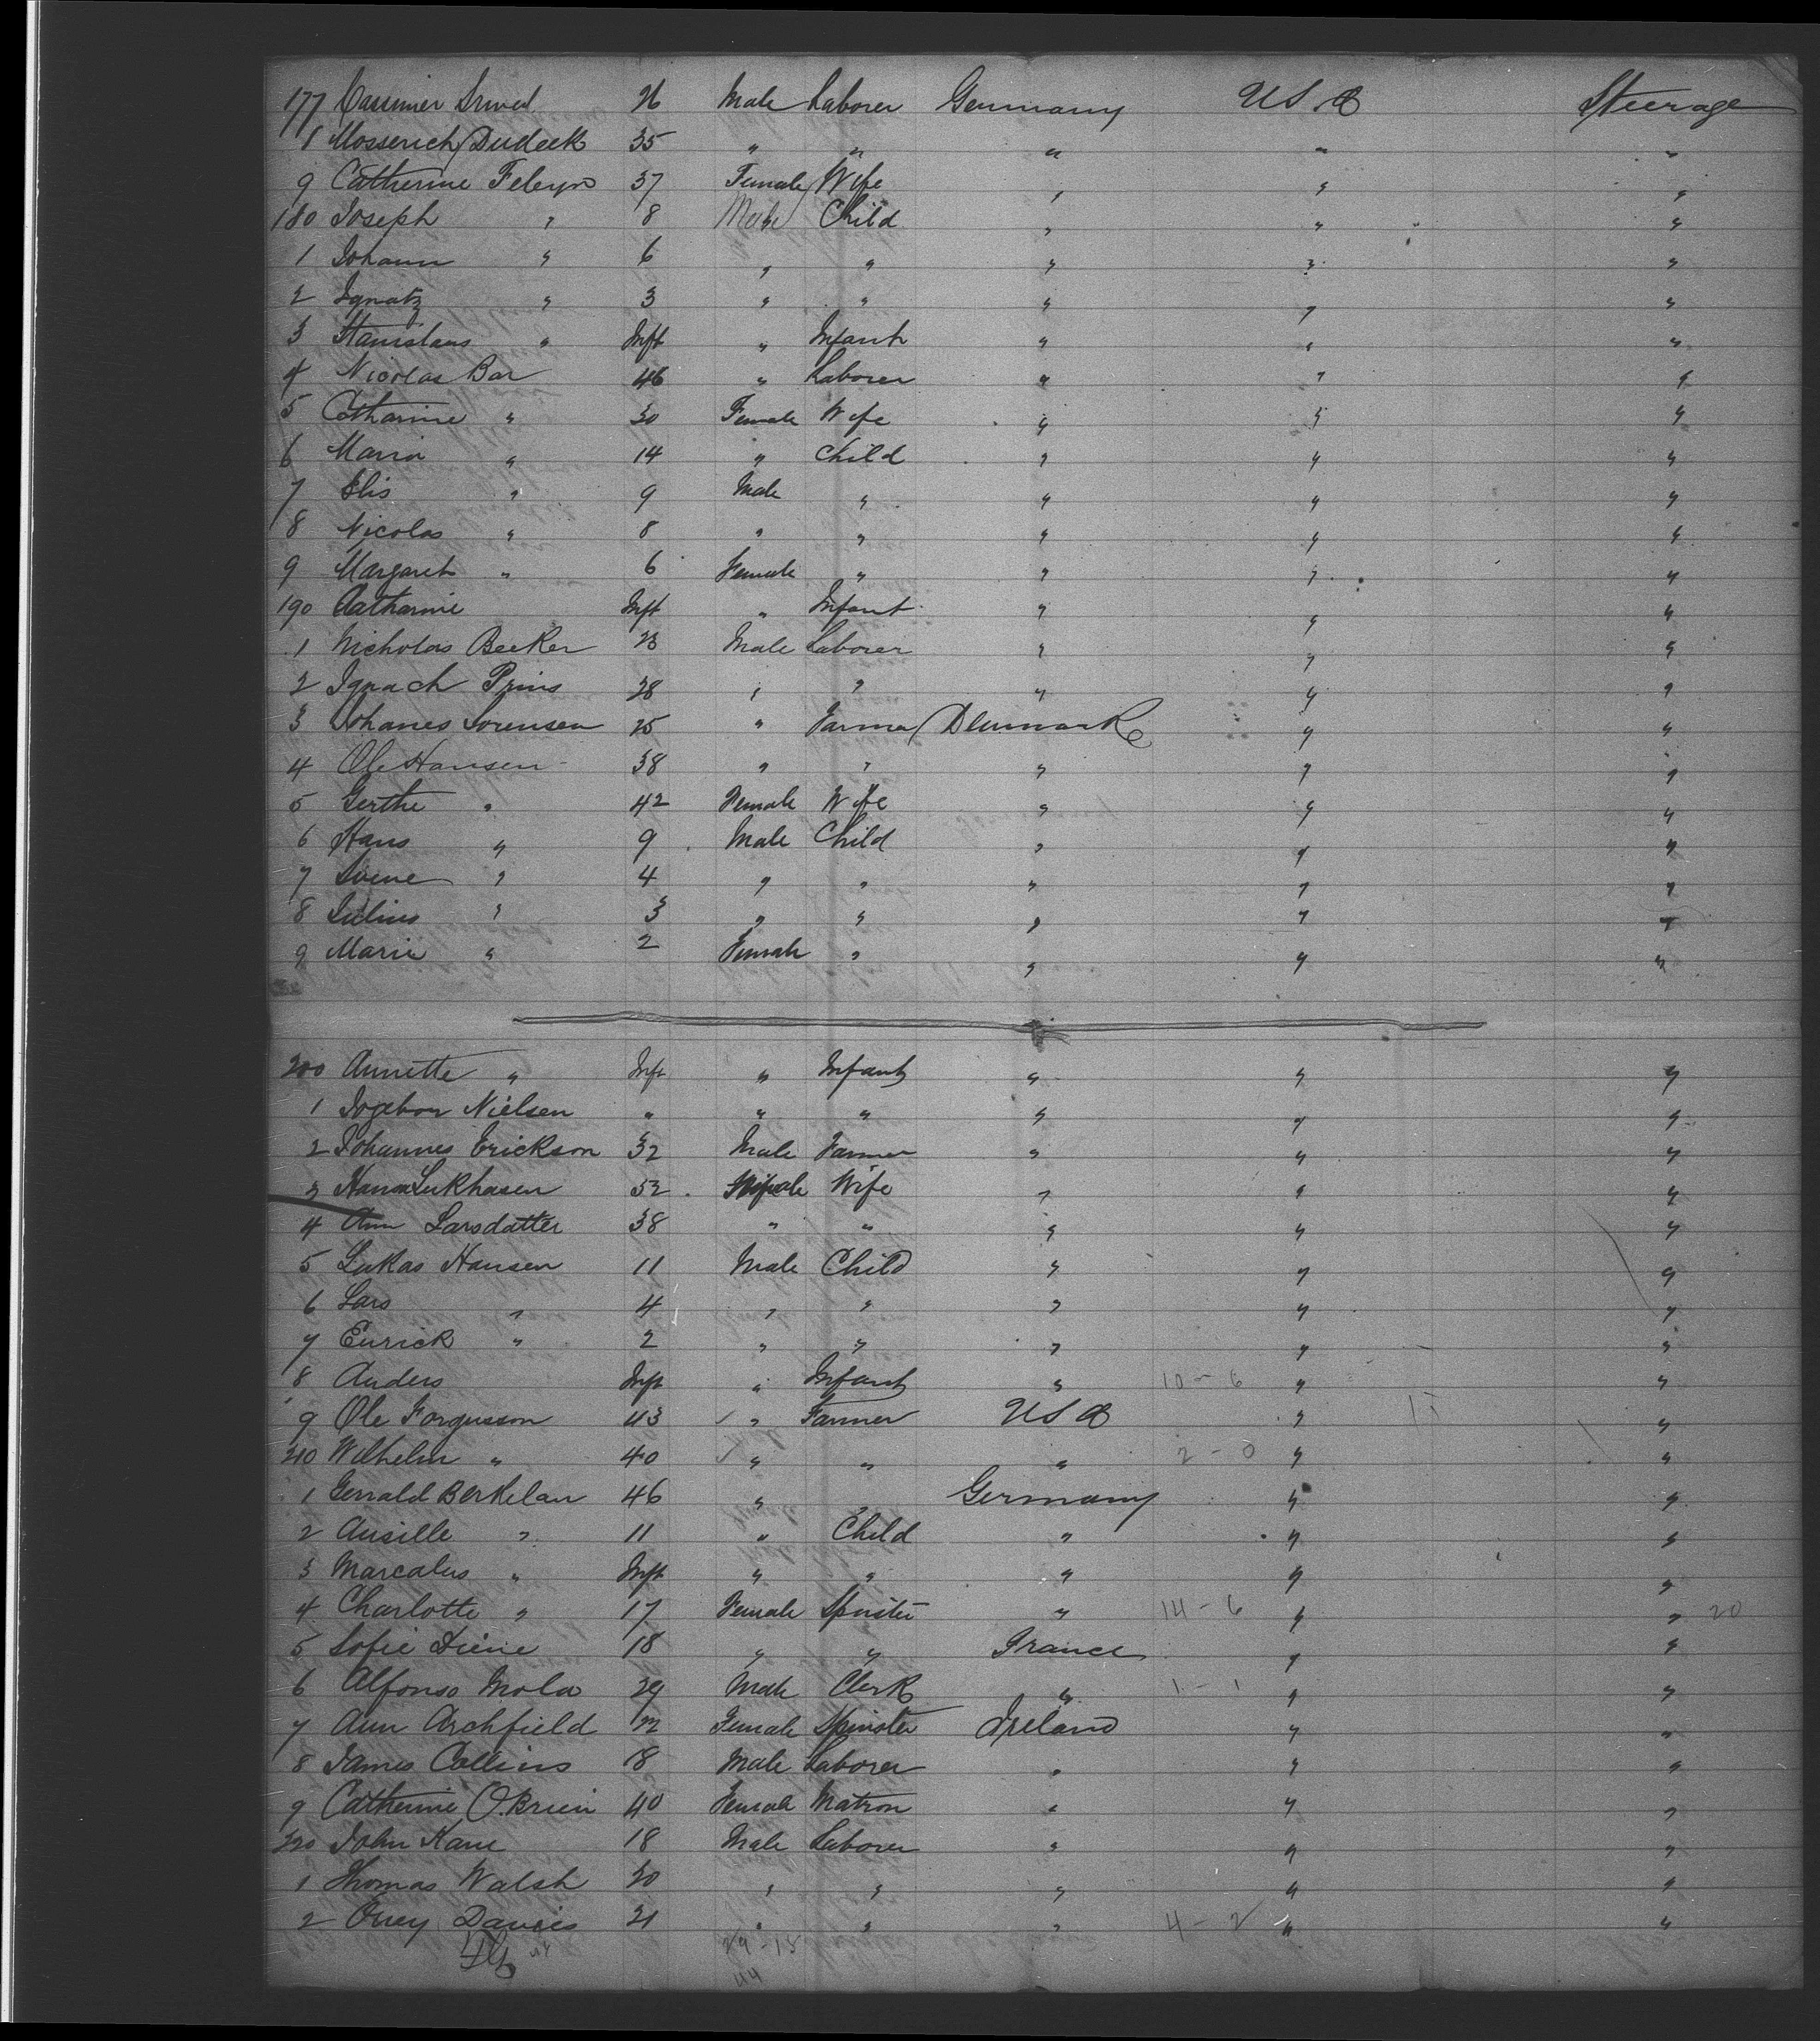 177 Cassimer 26 Male Laborer Germany USA Steerage
8 Mosserich Dudeck 35 " " " " "
9 Catherine Feleyn 37 Female Wife " " "
180 Joseph " 8 Male Child " " "
1 Johann " 6 " " " " "
2 Ignatz " 3 " " " " "
3 Stanislaus " Inft " Infant " " "
4 Nicolas Bar 46 " Laborer " " "
5 Catharine " 30 Female Wife " " "
6 Maria " 14 " Child " " "
7 Elis " 9 Male " " " "
8 Nicolas " 8 " " " " "
9 Margareth " 6 Female " " " "
190 Catharine Inft " Infant " " "
1 Nicholas Becker 23 Male Laborer " " "
2 Ignach Prins 28 " " " " "
3 Johanes Sorensen 25 " Farmer Denmark " "
4 Ole Hansen 38 " " " " "
5 Gerthe " 42 Female Wife " " "
6 Hans " 9 Male Child " " "
7 Svene " 4 " " " " "
8 Julius " 3 " " " " "
9 Marie " 2 Female " " " "
200 Annette " Inft " Infant " " "
1 Ingebor Nielsen " " " " " "
2 Johannes Erickson 32 Male Farmer " " "
3 Hansa Lukhasen 52 Female Wife " " "
4 Ann Larsdatter 38 " " " " "
5 Lukas Hansen 11 Male Child " " "
6 Lars " 4 " " " " "
7 Enrick " 2 " " " " "
8 Anders Inft " Infant " 10-6 " "
9 Ole Forgusson 43 " Farmer USA " "
210 Wilhelm " 40 " " " 2-0 " "
1 Gerrald Berkelau 46 " " Germany " "
2 Ausille " 11 " Child " " "
3 Marcalus " Inft " " " " "
4 Charlotte " 17 Female Spinster " 14-6 " " 20
5 Sofie Diene 18 " " France " "
6 Alfonso Mola 29 Male Clerk " 1-1 " "
7 Ann Archfield 22 Female Spinster Ireland " "
8 James Collins 18 Male Laborer " " "
9 Catherine O'Brien 40 Female Matron " " "
220 John Kane 18 Male Laborer " " "
1 Thomas Walsh 20 " " " " "
2 Davies 21 " " " 4-2 " "
29-15
44